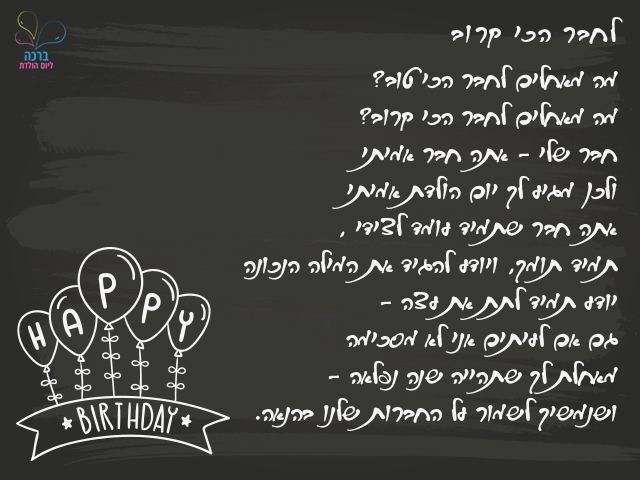 ברכה
ליום הולדת
לחבר הכי קרוב
מה מאחלים לחבר הכי טוב?
מה מאחלים לחבר הכי קרוב?
חבר שלי – אתה חבר אמיתי
ולכן מגיע לך יום הולדת אמיתי
אתה חבר שתמיד עומד לצידי ,
תמיד תומך, ויודע להגיד את המילה הנכונה
יודע תמיד לתת את עצה –
גם אם לעיתים אני לא מסכימה
מאחלת לך שתהייה שנה נפלאה –
ושנמשיך לשמור על החברות שלנו בהנאה.
HAPPY
BIRTHDAY